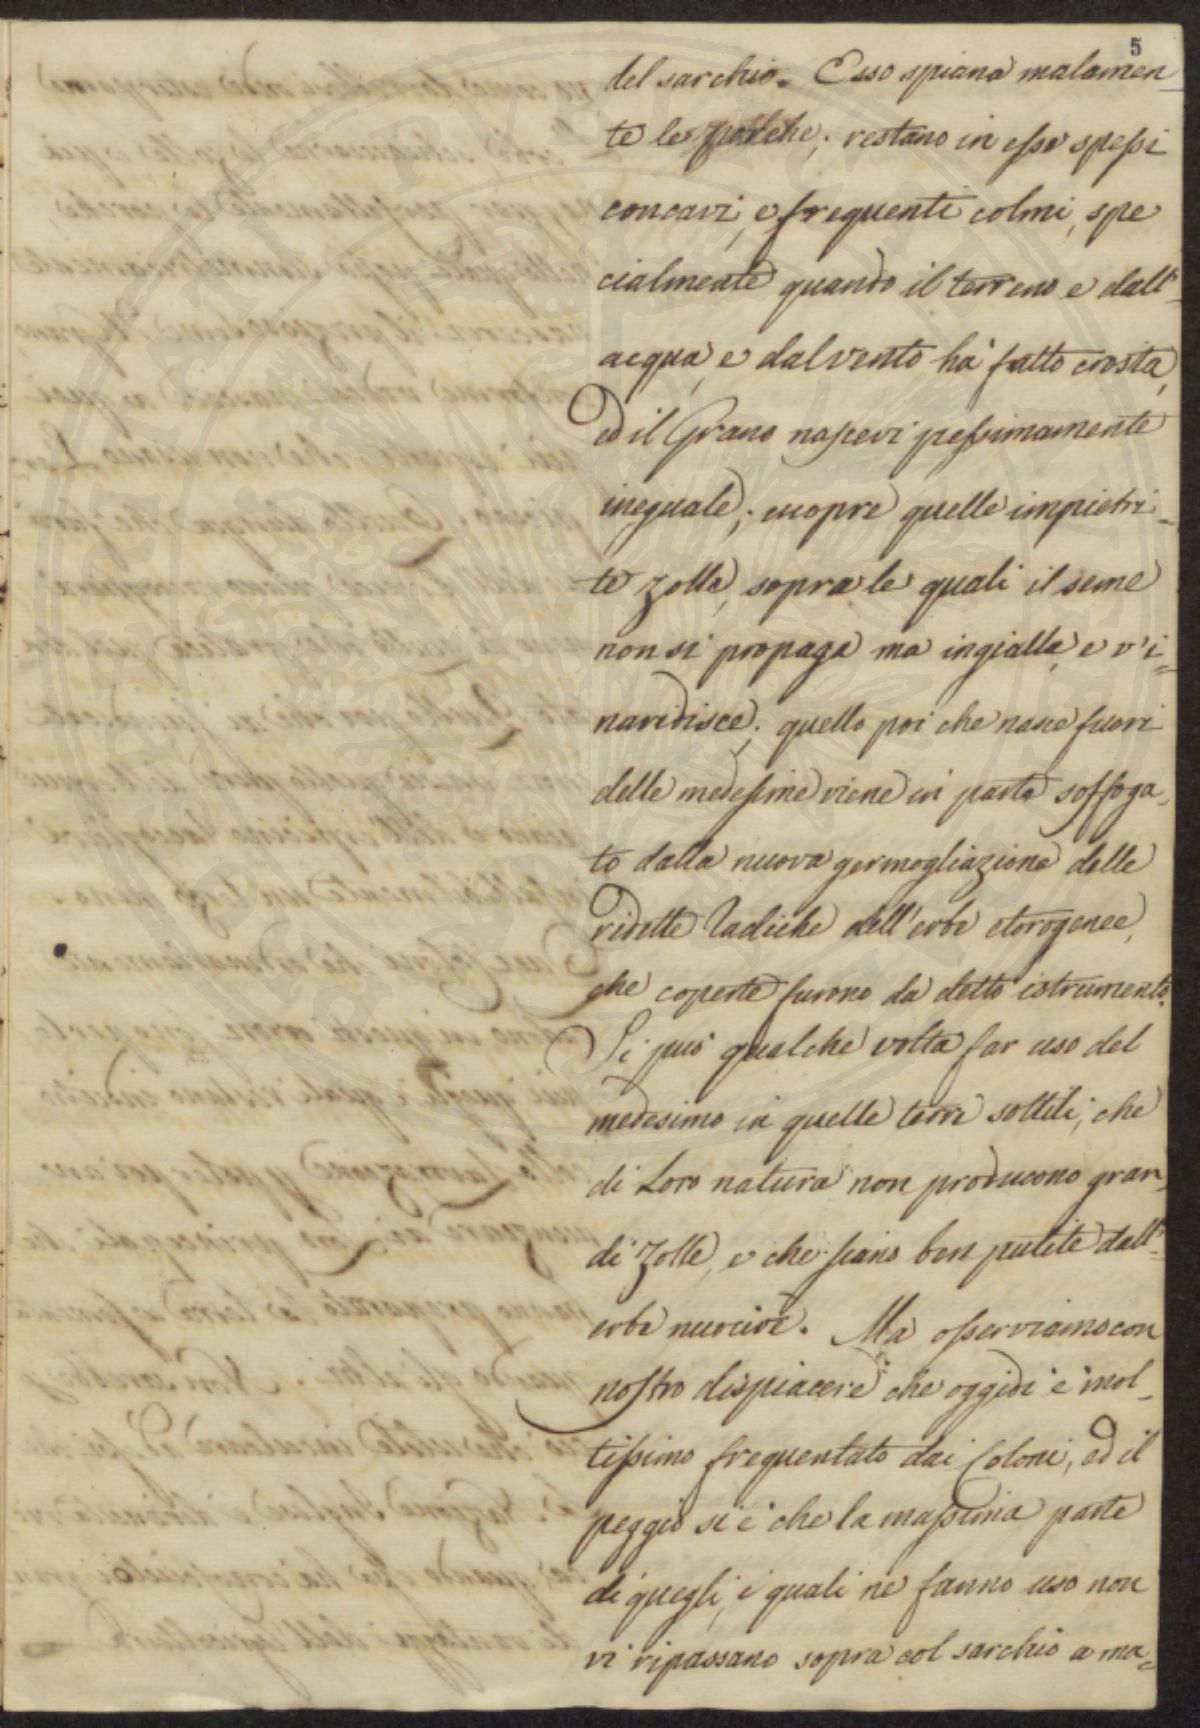 5
del sarchio. Esso spiana malamen_
te le porche; restano in esse spessi
concavi, e frequenti colmi, spe
cialmente quando il terreno e dall'_
acqua, e dal vento hà fatto crosta,
ed il Grano nascevi pessimamente
ineguale; cuopre quelle impietri_
te zolle, sopra le quali il seme
non si propaga ma ingialla, e v'i_
naridisce; quello poi che nasce fuori
delle medesime viene in parte soffoga_
to dalla nuova germogliazione delle
ridette Radiche dell'erbe eterogenee,
che coperte furono da detto istrumento.
Si può qualche volta far uso del
medesimo in quelle terre sottili, che
di Loro natura non producono gran_
di zolle, e che siano ben pulite dall'_
erbe nuocive. Ma osserviamo con
nostro dispiacere che oggidì è mol_
tissimo frequentato dai Coloni, ed il
peggio si è che la massima parte
di quegli, i quali ne fanno uso non
vi ripassano sopra col sarchio a ma_